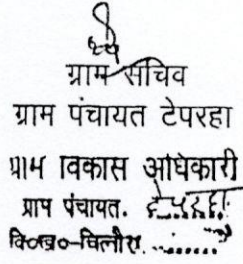 ग्राम सचिव
ग्राम पंचायत टेपरहा
ग्राम विकास अधिकारी
ग्राप पंचायत.
वि०ख०-चित्तौरा.